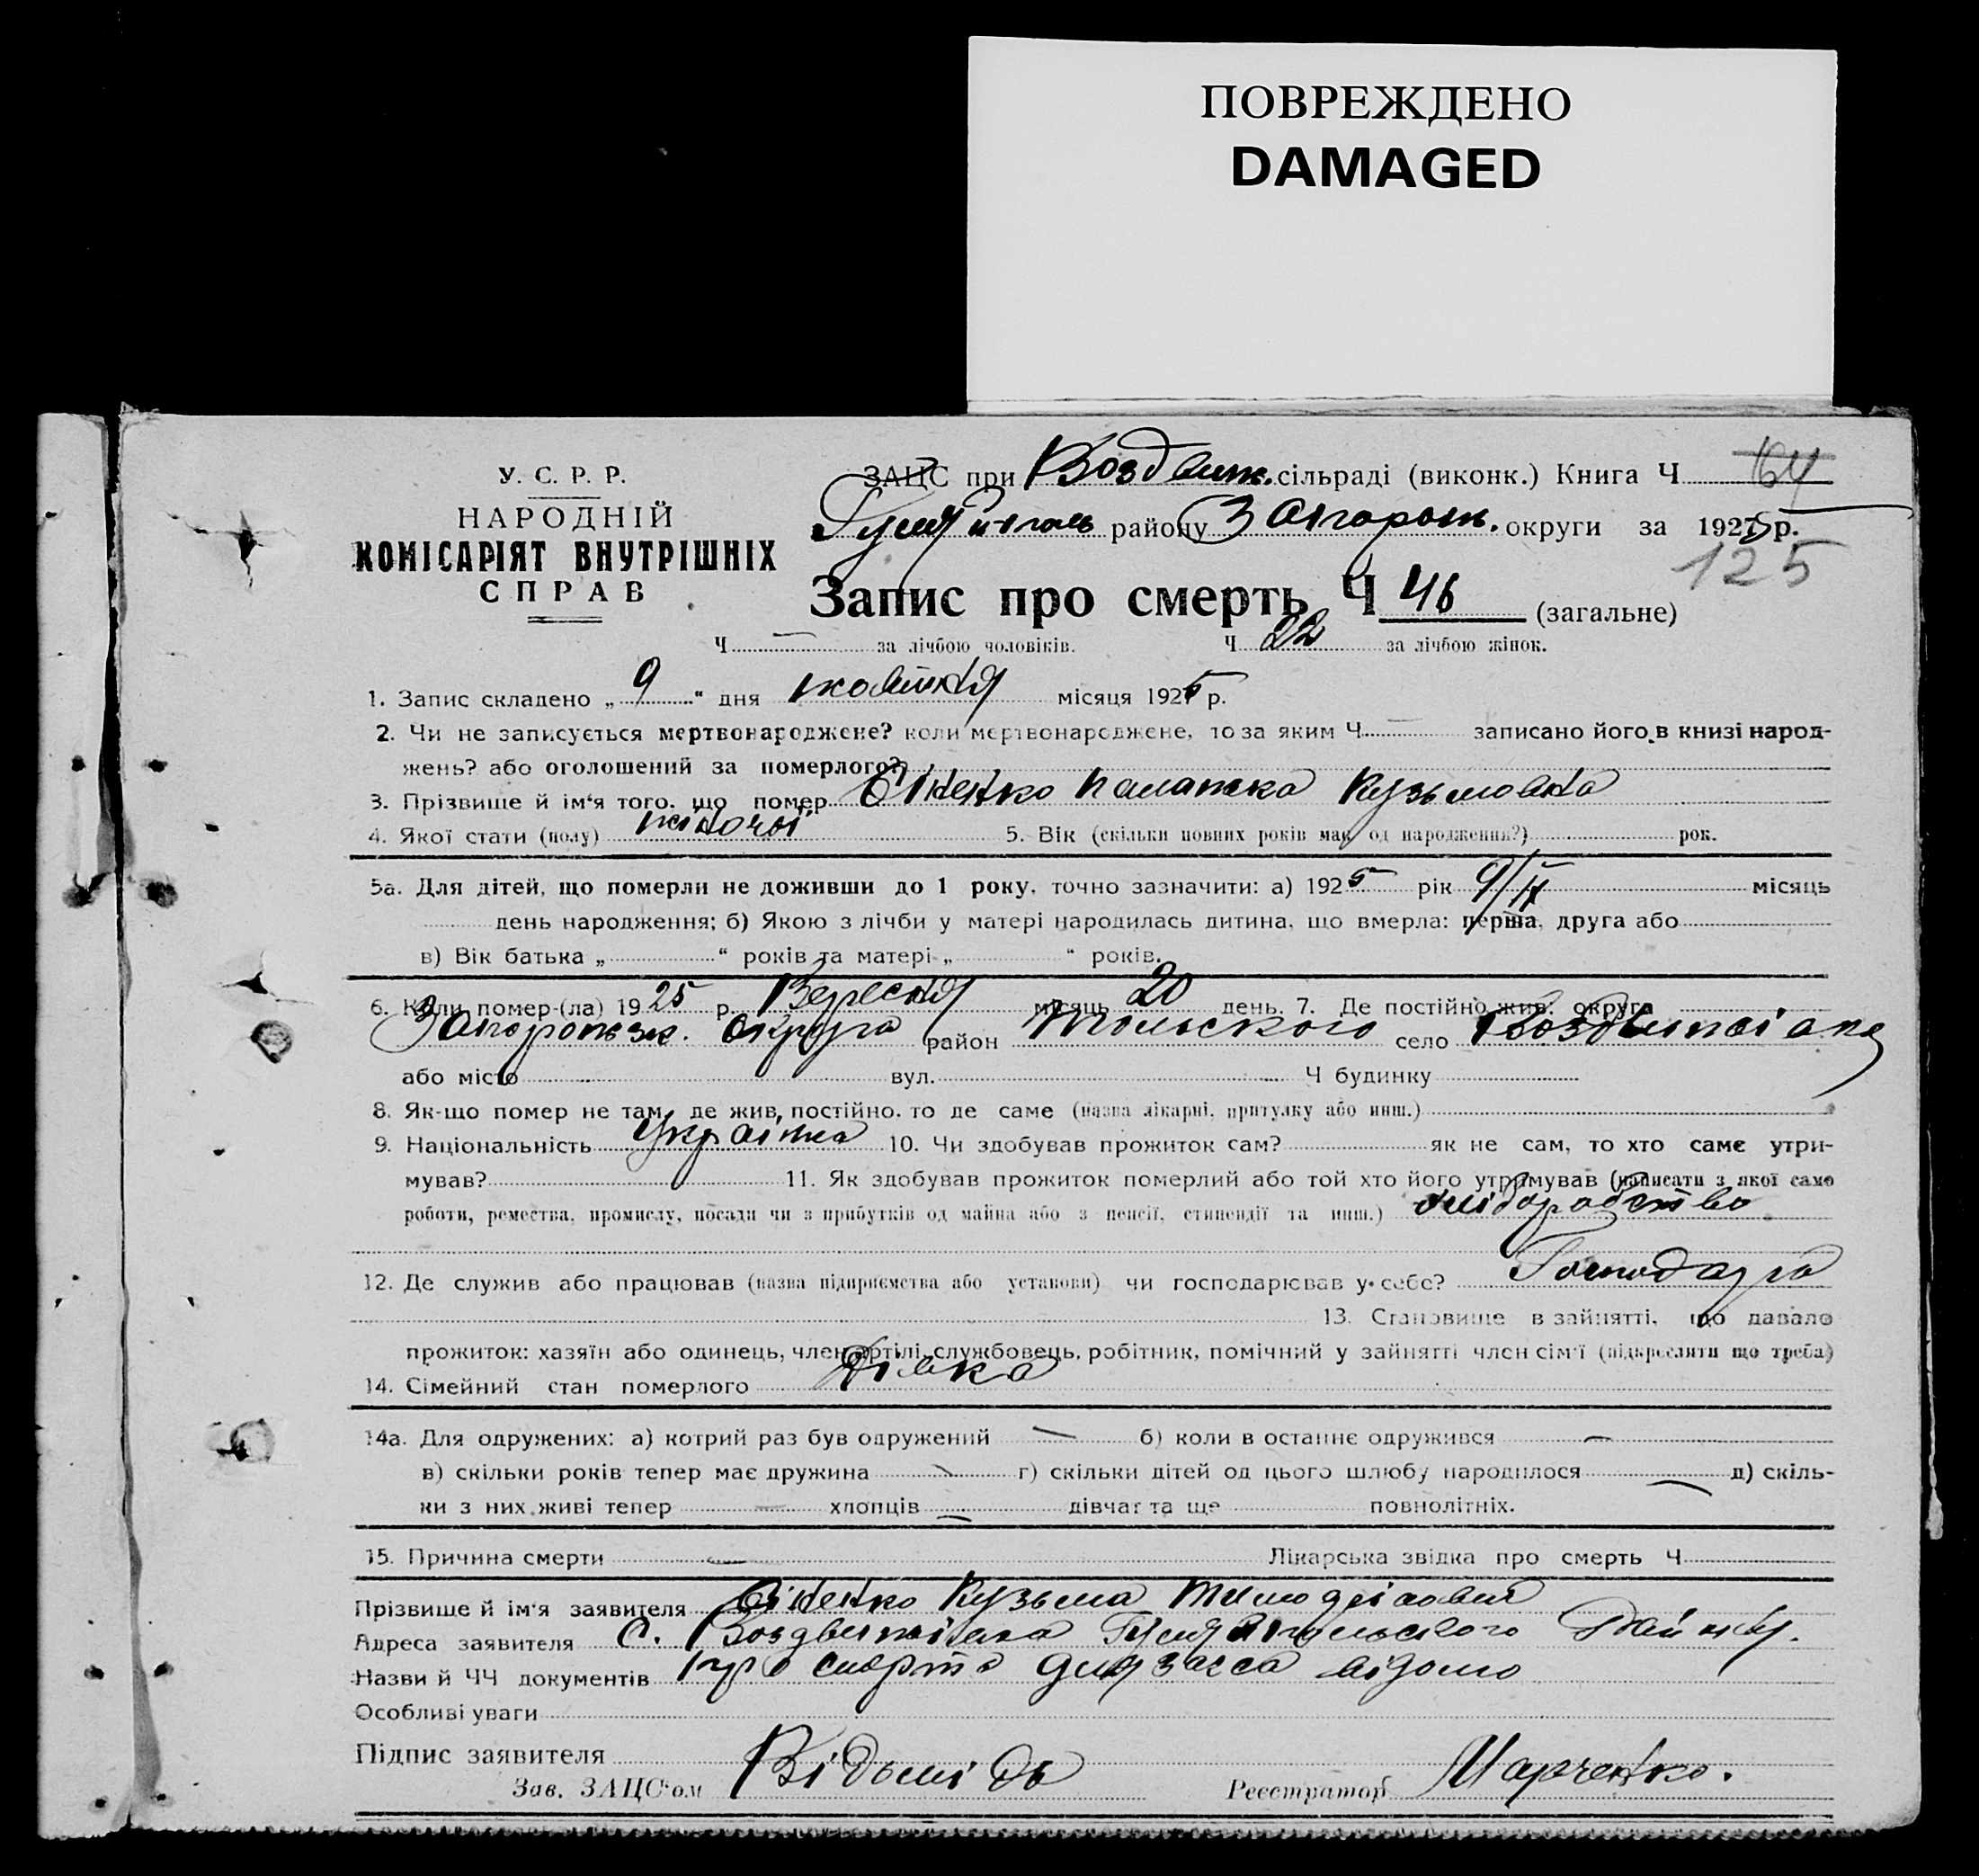 ПОВРЕЖДЕНО
DAMAGED
У. С. Р. Р.
НАРОДНІЙ
КОМІСАРІЯТ ВНУТРІШНІХ
СПРАВ
ЗАЦС при Воздвиж. сільраді (виконк.) Книга Ч 164
Гуляйпіль району Запорож. округи за 1925 р.
125
Запис про смерть Ч 46 (загальне)
Ч — за лічбою чоловіків. Ч 22 за лічбою жінок.
1. Запис складено „ 9 “ дня жовтня місяця 1925 р.
2. Чи не записується мертвонароджене? коли мертвонароджене, то за яким Ч — записано його в книзі народ-
жень? або оголошений за померлого?
3. Прізвище й ім'я того, що помер Сіненко Палажка Кузьмовна
4. Якої стати (полу) жіночої 5. Вік (скільки повних років мав од народження?) рок.
5а. Для дітей, що померли не доживши до 1 року, точно зазначити: а) 1925 рік 9/IX місяць
день народження; б) Якою з лічби у матері народилась дитина, що вмерла: перша, друга або
в) Вік батька „ “ років та матері „ “ років.
6. Коли помер-(ла) 1925 р. Вересня місяць 20 день. 7. Де постійно жив: округа
Запорожзк. округа район польского село Воздвижівка
або місто вул. Ч будинку
8. Як-що помер не там, де жив, постійно, то де саме (назва лікарні, притулку або инш.)
9. Національність Українка 10. Чи здобував прожиток сам? як не сам, то хто саме утри-
мував? 11. Як здобував прожиток померлий або той хто його утримував (написати з якої само
роботи, ремества, промислу, посади чи з прибутків од майна або з пенсії, стипендії та инш.) хліборобство
12. Де служив або працював (назва підприємства або установи) чи господарював у себе? Господарю
13. Становище в зайнятті, що давало
прожиток: хазяїн або одинець, член артілі, службовець, робітник, помічний у зайнятті член сім'ї (підкреслити що треба)
14. Сімейний стан померлого Дівка
14а. Для одружених: а) котрий раз був одружений — б) коли в останнє одружився —
в) скільки років тепер має дружина — г) скільки дітей од цього шлюбу народилося — д) скіль-
ки з них живі тепер — хлопців — дівчат та ще повнолітніх.
15. Причина смерти — Лікарська звідка про смерть Ч
Прізвище й ім'я заявителя Сіненко Кузьма
Адреса заявителя С. Воздвижівка Гуляйпольского Району.
Назви й ЧЧ документів про смерть для загса відомо
Особливі уваги
Підпис заявителя
Зав. ЗАЦС'ом Реєстратор Марченко.